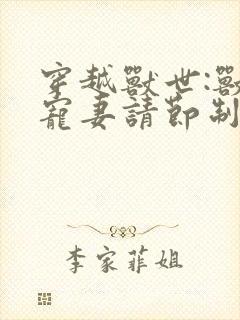 穿越獸世:獸
寵妻請節制
李家菲姐